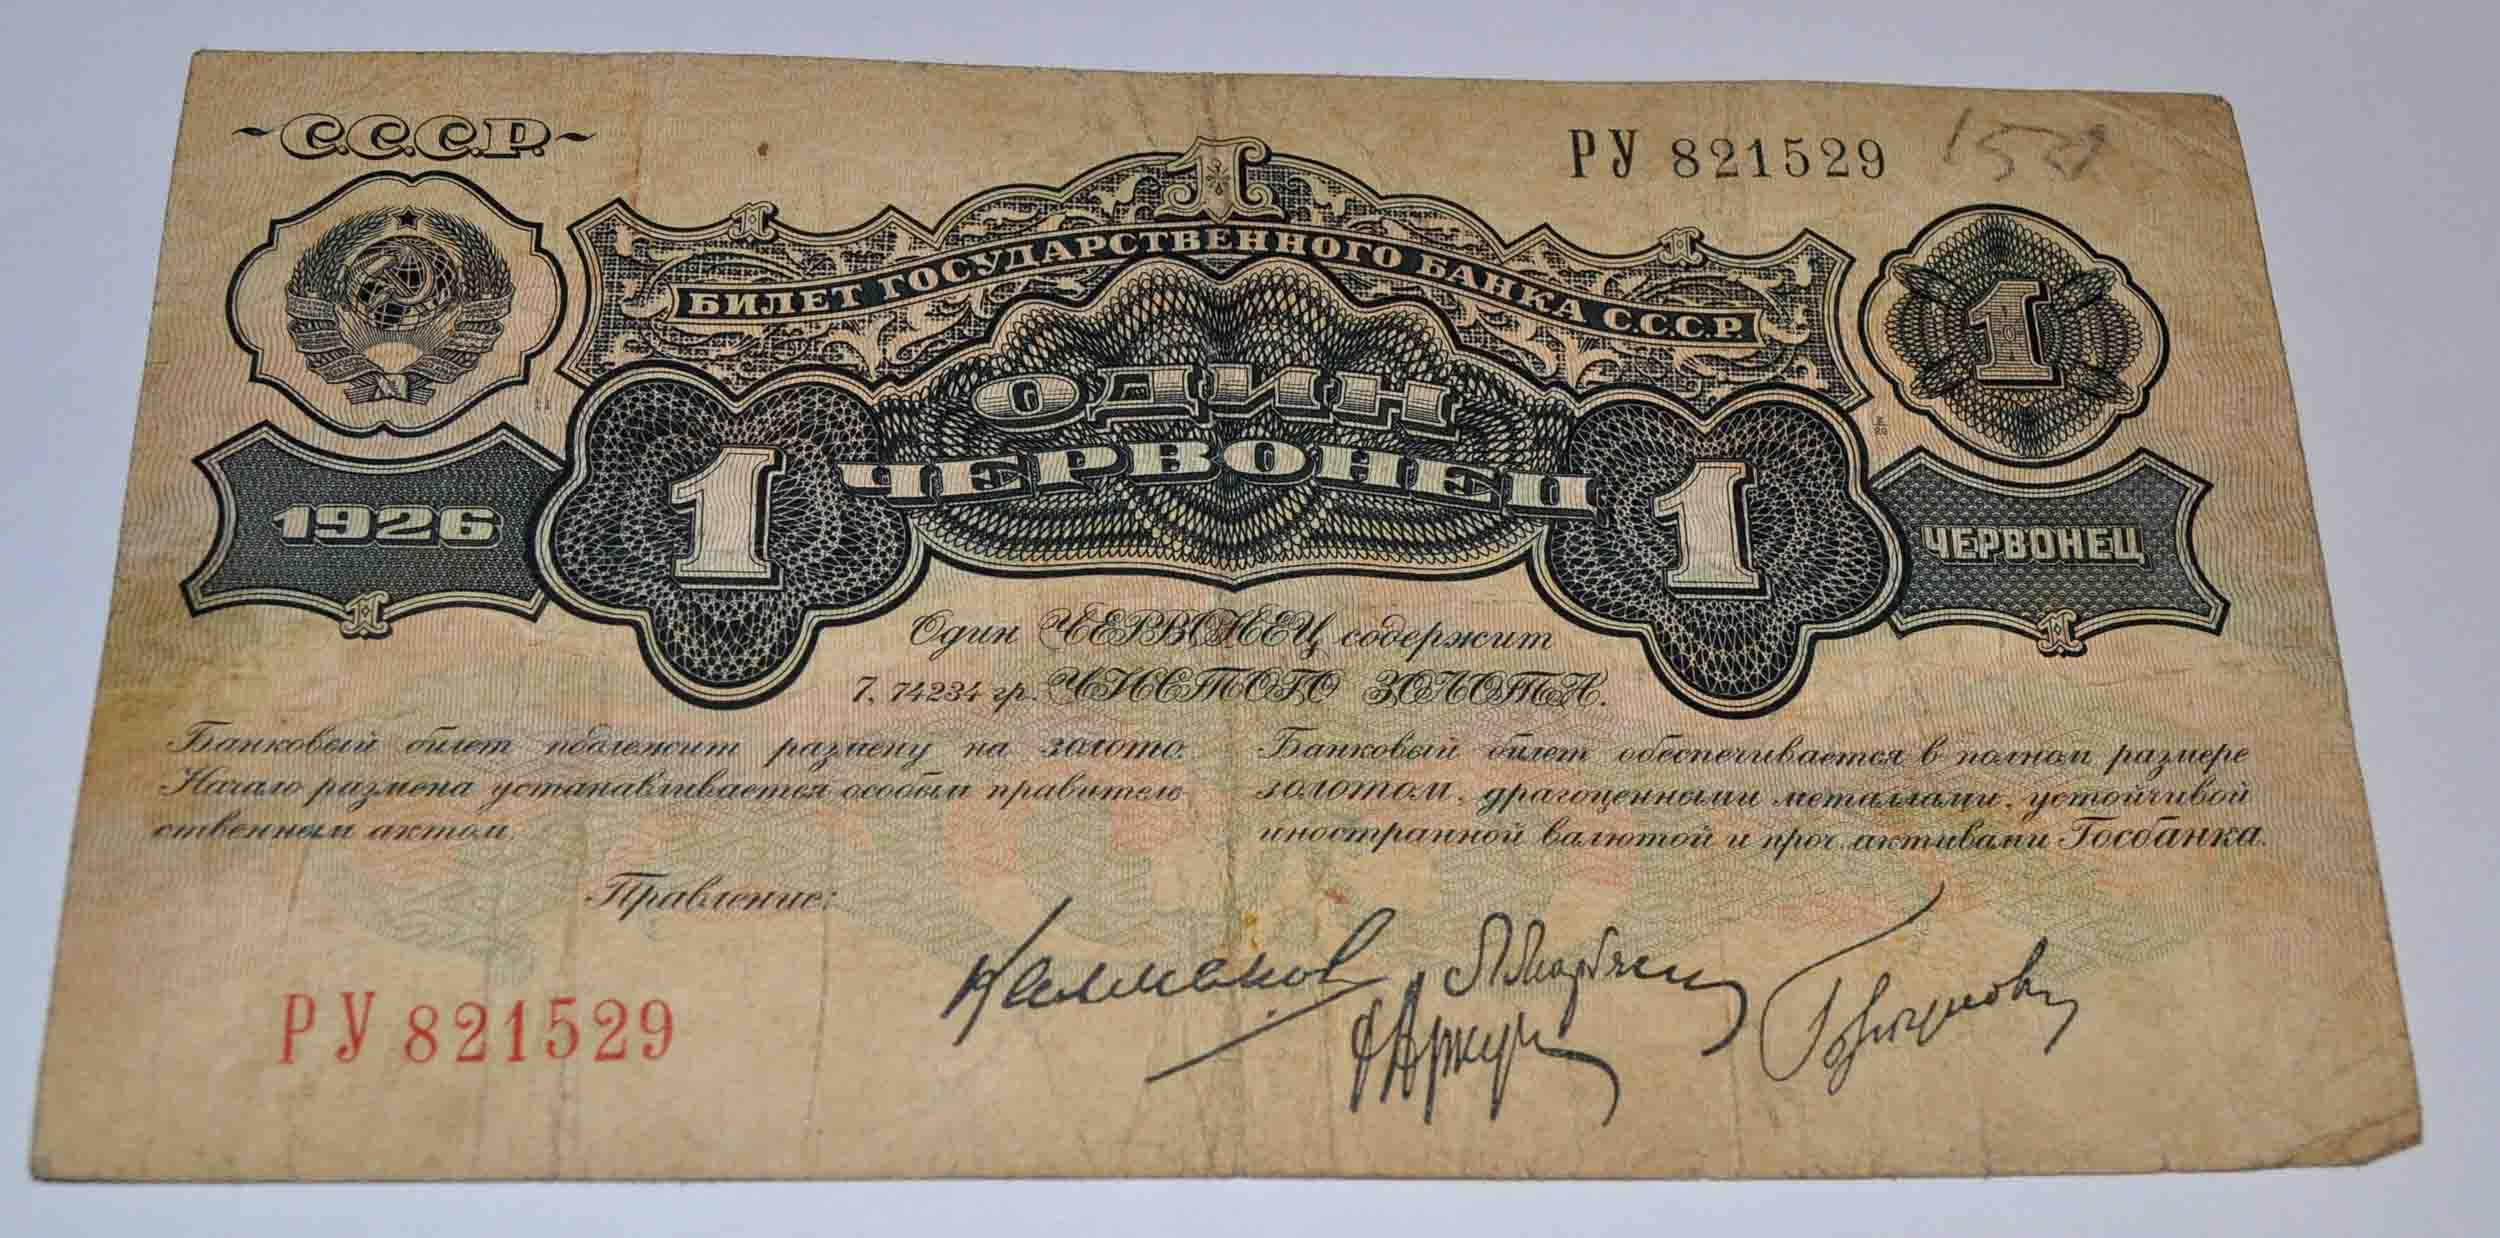 С.С.С.Р.
РУ 821529
1
БИЛЕТ ГОСУДАРСТВЕННОГО БАНКА С.С.С.Р.
1
ОДИН
ЧЕРВОНЕЦ
1926
1
1
ЧЕРВОНЕЦ
Один ЧЕРВОНЕЦ содержит
7,74234 гр. ЧИСТОГО ЗОЛОТА.
Банковый билет подлежит размену на золото.
Начало размена устанавливается особым правитель
ственным актом.
Банковый билет обеспечивается в полном размере
золотом, драгоценными металлами, устойчивой
иностранной валютой и проч. активами Госбанка.
Правление:
РУ 821529